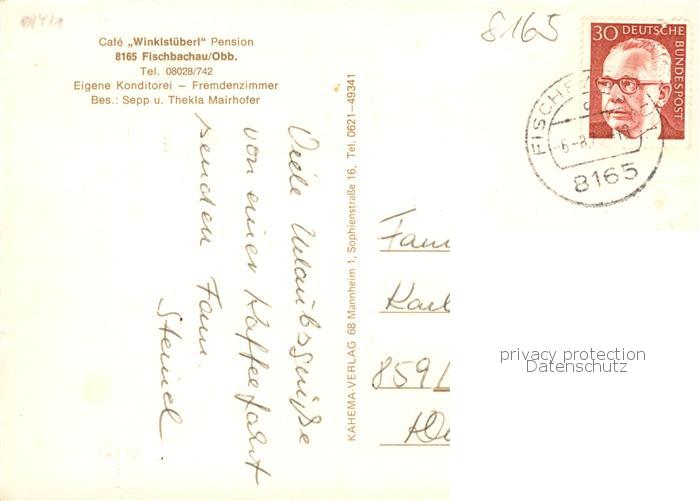 8165
Café „Winklstüberl" Pension
8165 Fischbachau/Obb.
Tel. 08028/742
Eigene Konditorei – Fremdenzimmer
Bes.: Sepp u. Thekla Mairhofer
30 DEUTSCHE BUNDESPOST
8165
Viele Urlaubsgrüße
von einer Kaffeefahrt
senden Fam.
Steinel.
KAHEMA-VERLAG 68 Mannheim 1, Sophienstraße 16, Tel. 0621–49341
Fam
Karl
859/
privacy protection
Datenschutz